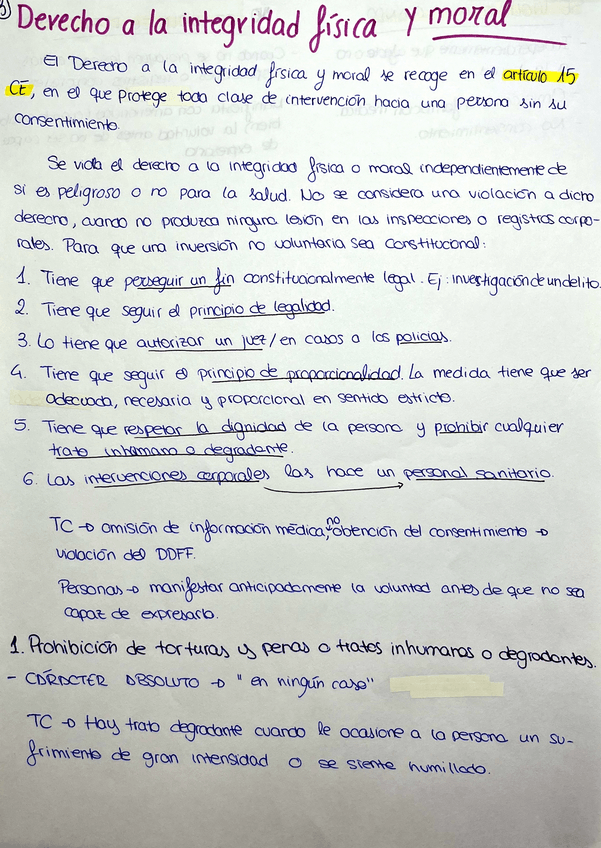 Derecho a la integridad física y moral
El Derecho a la integridad física y moral se recoge en el artículo 15
CE, en el que protege toda clase de intervención hacia una persona sin su
consentimiento.
Se viola el derecho a la integridad física o moral independientemente de
si es peligroso o no para la salud. No se considera una violación a dicho
derecho, cuando no produzca ninguna lesión en las inspecciones o registros corpo-
rales. Para que una inversión no voluntaria sea constitucional:
1. Tiene que perseguir un fin constitucionalmente legal. Ej: investigación de un delito.
2. Tiene que seguir el principio de legalidad.
3. Lo tiene que autorizar un juez/en casos a los policías.
4. Tiene que seguir el principio de proporcionalidad. La medida tiene que ser
adecuada, necesaria y proporcional en sentido estricto.
5. Tiene que respetar la dignidad de la persona y prohibir cualquier
trato inhumano o degradante.
6. Las intervenciones corporales las hace un personal sanitario.
TC → omisión de información médica, no obtención del consentimiento →
violación del DDFF.
Personas → manifestar anticipadamente la voluntad antes de que no sea
capaz de expresarlo.
1. Prohibición de torturas y penas o tratos inhumanos o degradantes.
- CÁRACTER ABSOLUTO → "en ningún caso"
TC → Hay trato degradante cuando le ocasione a la persona un su-
frimiento de gran intensidad o se siente humillado.